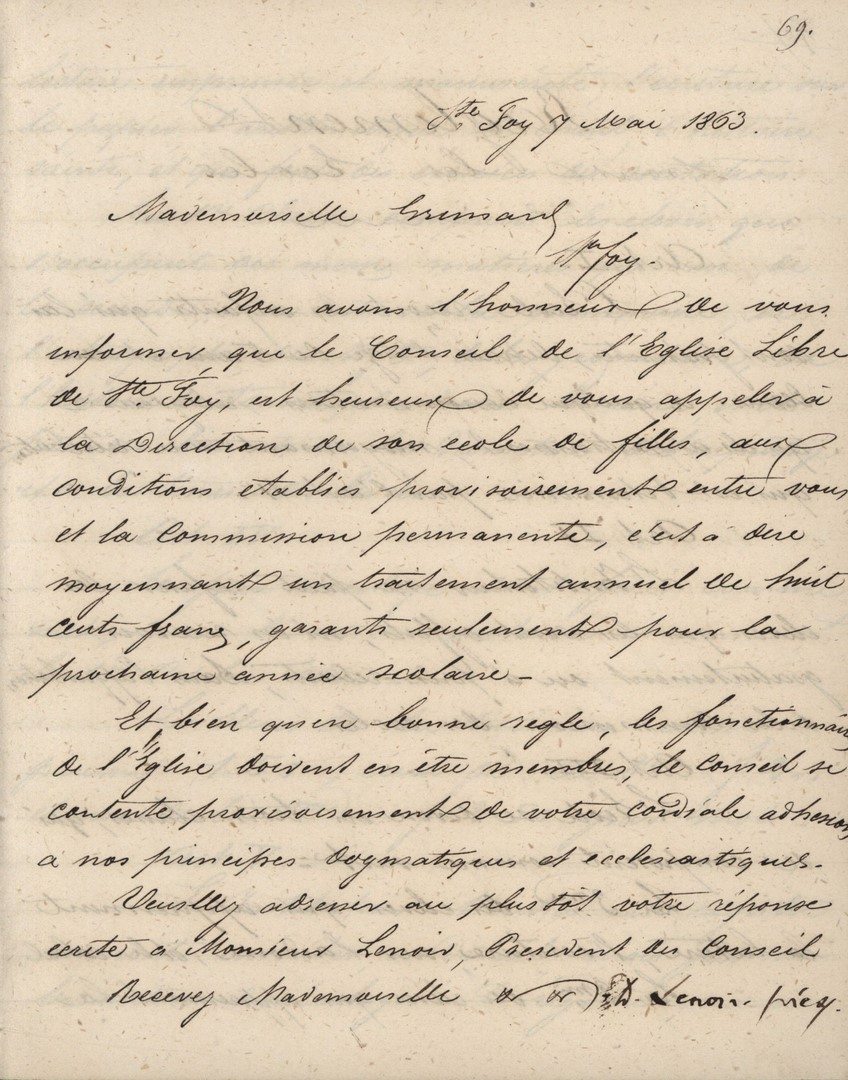 69.
Ste Foy 7 Mai 1863.
Mademoiselle Grimard
Ste foy.
Nous avons l'honneur de vous
informer, que le Conseil de l'Eglise Libre
de Ste. Foy, est heureux de vous appeler à
la Direction de son ecole de filles, aux
conditions etablies provisoirement entre vous
et la Commission permanente, c'est à dire
moyennant un traitement annuel de huit
cents francs, garanti seulement pour la
prochaine année scolaire -
Et, bien qu'en bonne regle, les fonctionnaires
de l'Eglise doivent en être membres, le conseil se
contente provisoirement de votre cordiale adhesion
a nos principes dogmatiques et ecclesiastiques.
Veuillez adresser au plustôt votre réponse
ecrite a Monsieur Lenoir, President du Conseil
Recevez Mademoiselle & & D. Lenoir. prést.